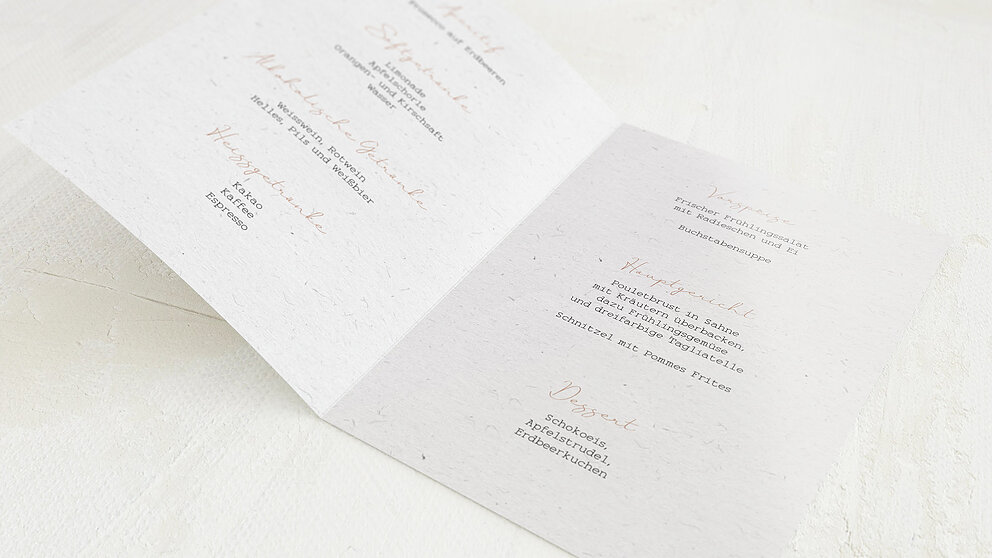 Aperitif
Prosecco auf Erdbeeren
Softgetränke
Limonade
Apfelschorle
Orangen- und Kirschsaft
Wasser
Alkoholische Getränke
Weisswein, Rotwein
Helles, Pils und Weißbier
Heissgetränke
Kakao
Kaffee
Espresso
Vorspeise
Frischer Frühlingssalat
mit Radieschen und Ei
Buchstabensuppe
Hauptgericht
Pouletbrust in Sahne
mit Kräutern überbacken,
dazu Frühlingsgemüse
und dreifarbige Tagliatelle
Schnitzel mit Pommes Frites
Dessert
Schokoeis,
Apfelstrudel,
Erdbeerkuchen